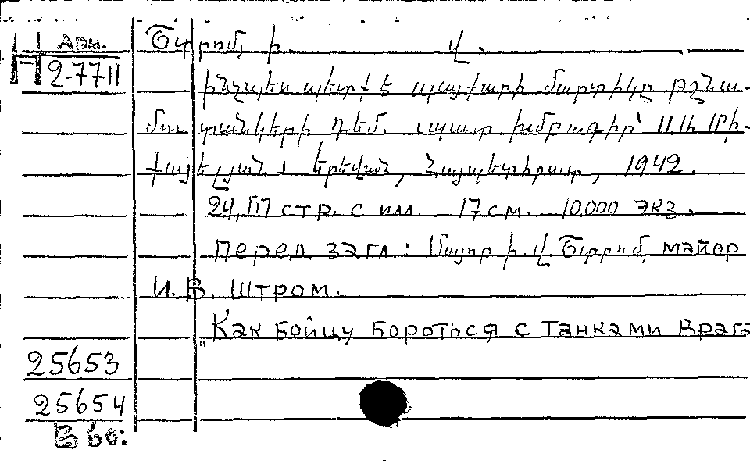 Арм.
П
2-7711
Շտրոմ, Ի. Վ.
Ինչպես պետք է պայքարի մարտիկը թշնա-
մու տանկերի դեմ. պատ. խմբագիր՝
Երևան, Հայպետհրատ, 1942.
24, III стр. с илл. 17 см. 10.000 экз.
Перед загл.: Մայոր Ի. Վ. Շտրոմ, майор
И. В. Штром.
„Как бойцу бороться с танками врага
25653
25654